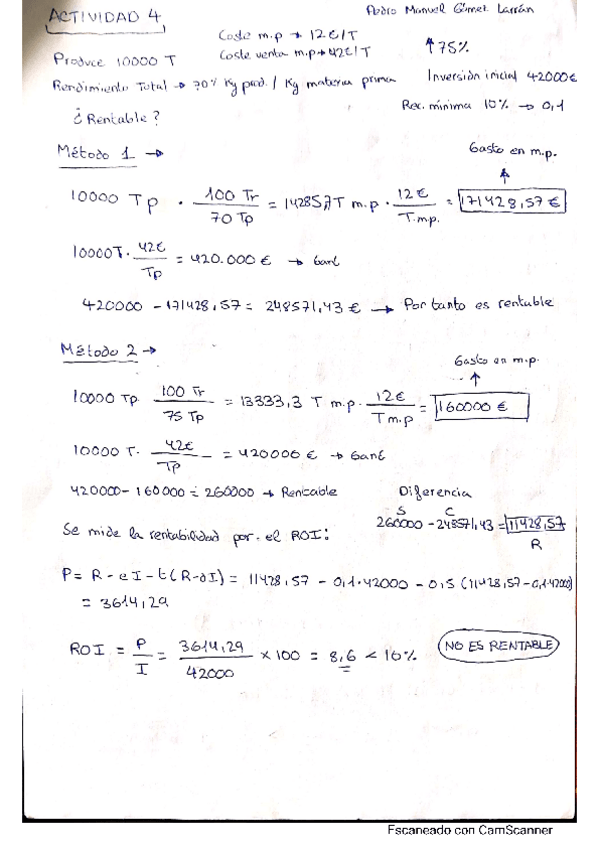 ACTIVIDAD 4
Pedro Manuel Gómez Larrán
Coste m.p → 12€/T
Produce 10000 T
Coste venta m.p → 42€/T
↑75%
Rendimiento Total → 70% Kg prod. / Kg materia prima
Inversión inicial 42000€
¿Rentable?
Rec. mínima 10% → 0,1
Método 1 →
Gasto en m.p.
10000 Tp · 100 Tr / 70 Tp = 14285,7 T m.p · 12€ / T.m.p. = 171428,57 €
10000T · 42€ / Tp = 420.000 € →
420000 - 171428,57 = 248571,43 € → Por tanto es rentable
Método 2 →
Gasto en m.p.
10000 Tp. 100 Tr / 75 Tp = 13333,3 T m.p. · 12€ / T m.p = 160000 €
10000 T. 42€ / Tp = 420000 € →
420000 - 160000 = 260000 → Rentable
Diferencia
S C
260000 - 248571,43 = 11428,57
R
Se mide la rentabilidad por el ROI:
P = R - eI - t(R-dI) = 11428,57 - 0,1·42000 - 0,5 (11428,57 - 0,1·42000)
= 3614,29
ROI = P / I = 3614,29 / 42000 × 100 = 8,6 < 10%
NO ES RENTABLE
Escaneado con CamScanner